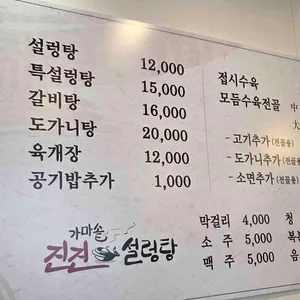 설렁탕 12,000
특설렁탕 15,000
갈비탕 16,000
도가니탕 20,000
육개장 12,000
공기밥추가 1,000
가마솥
진견 설렁탕
접시수육
모듬수육전골 中
大
- 고기추가 (전골용)
- 도가니추가 (전골용)
- 소면추가 (전골용)
막걸리 4,000 청
소 주 5,000 복분
맥 주 5,000 음